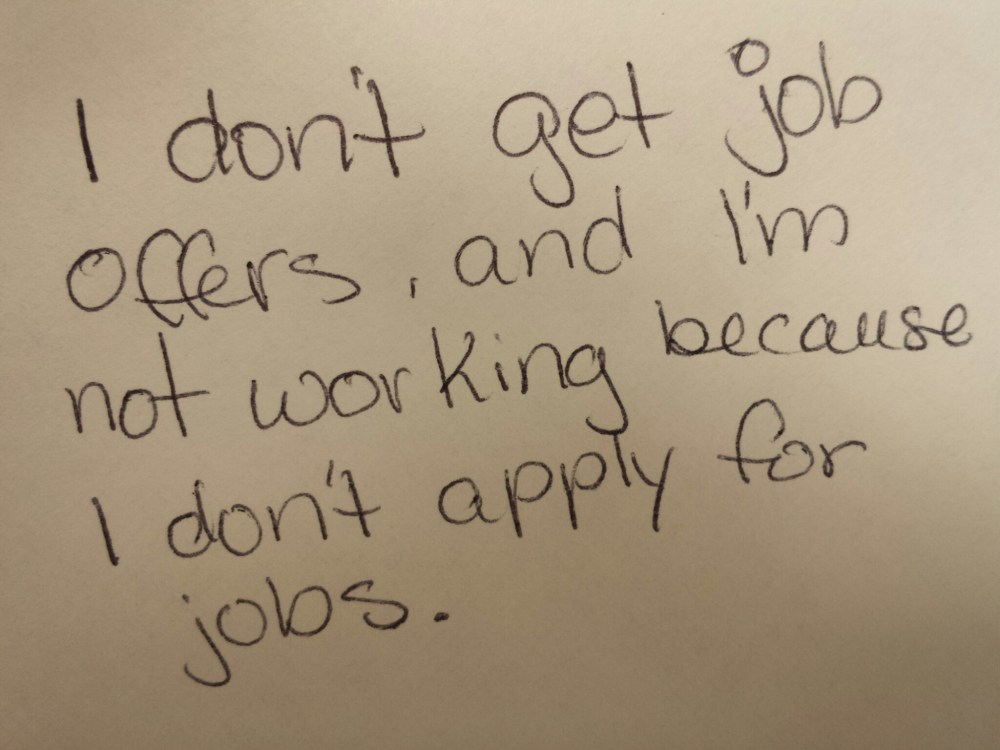 I don't get job
offers, and I'm
not working because
I don't apply for
jobs.